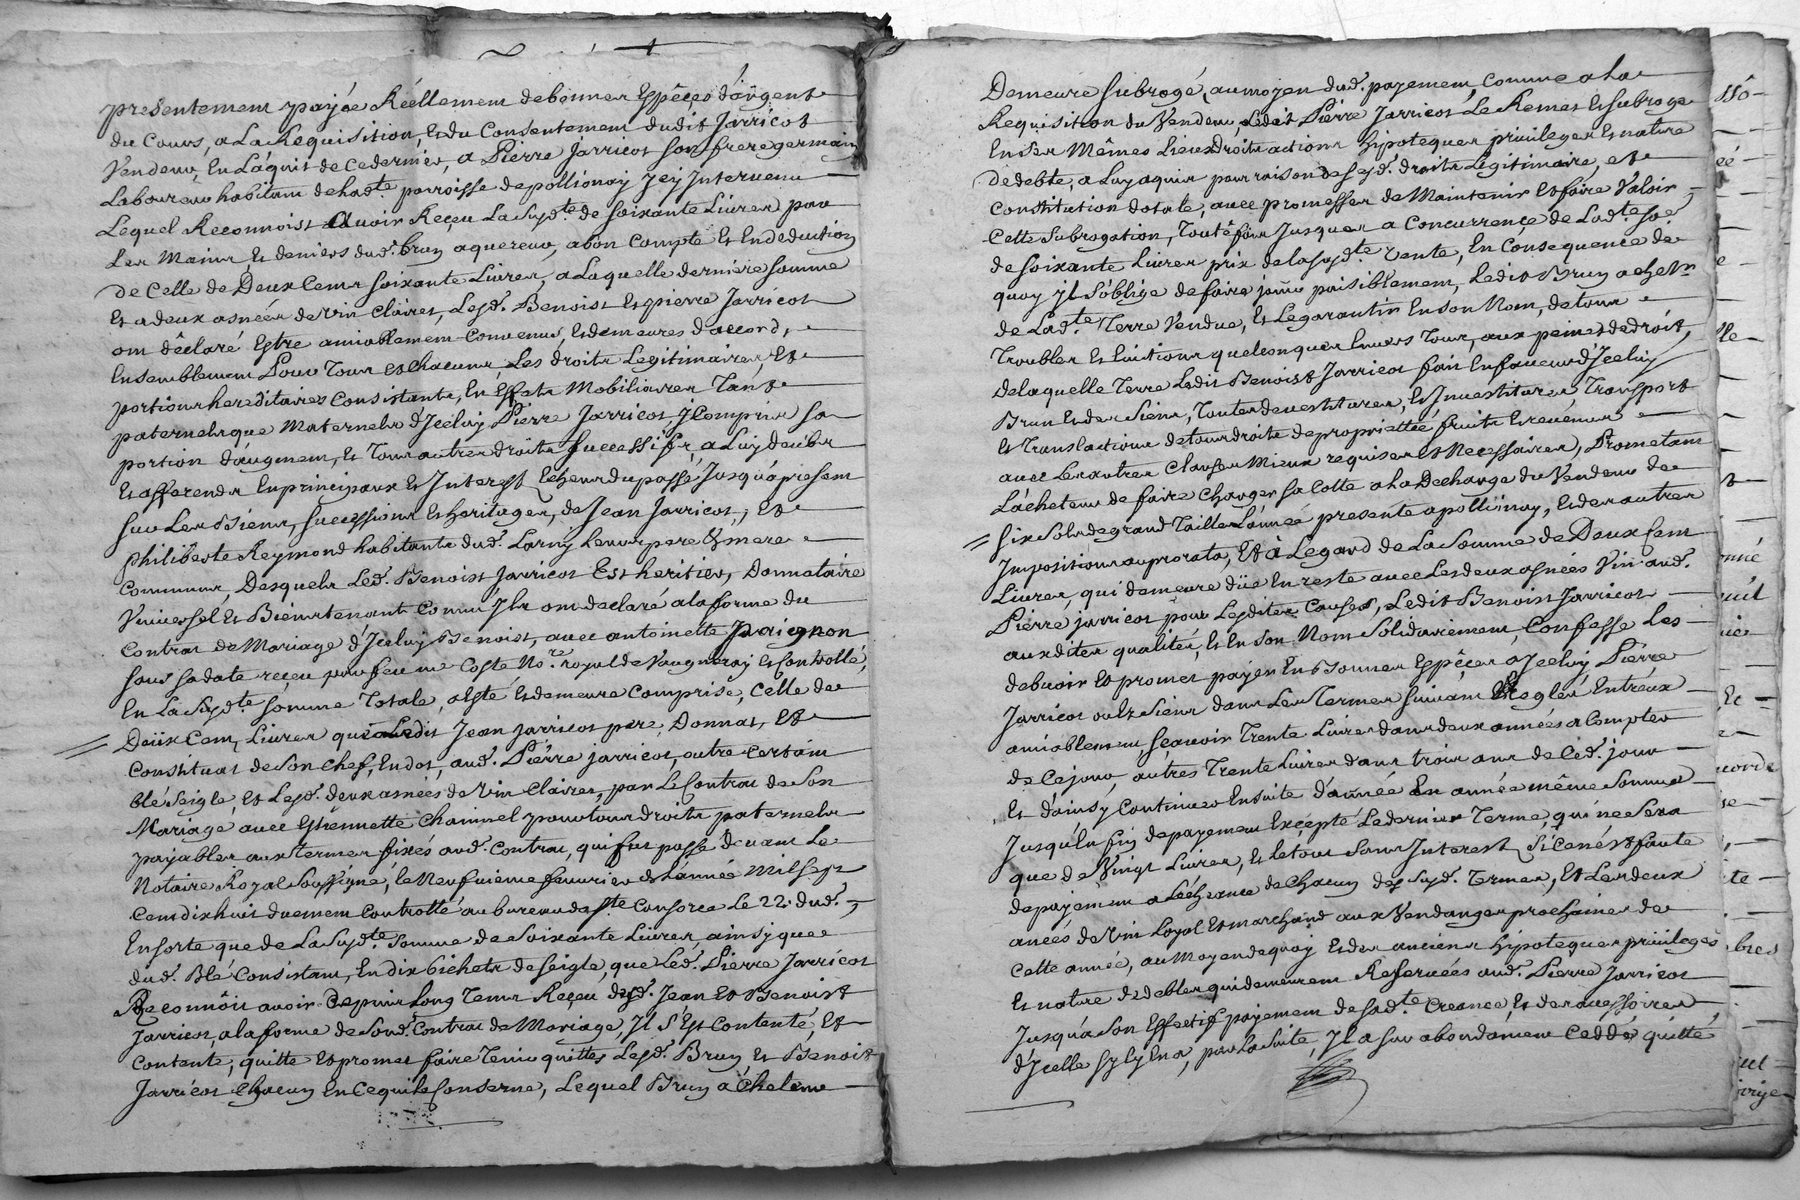 presentement payée Réellement de bonnes Espêces d'argent
du Cours, a La Requisition, Et du Consentement dudit Jarricot
Vendeur, En L'aquit de Ce dernier, a Pierre Jarricot son frere germain
Laboureur habitant de lad.te parroisse de pollionay Jcy Intervenu
Lequel Reconnoist avoir Reçeu La Susd.te de soixante Livres par
Les Mains Et deniers dud. brun aquereur, a bon Compte Et En deduction
de Celle de Deux Cents soixante Livres, a Laquelle derniere somme
Et a deux asnées de Vin Claires, Lesd. Benoist Et pierre Jarricot
ont déclaré Estre amiablement Convenus, Et demeures d'accord,
Ensemblement Pour Tous Et chacuns, Les droits Legitimaires, Et
portions hereditaires Consistants, En Effets Mobiliaires Tant
paternels que Maternels d'Jceluy Pierre Jarricot, y Compris Sa
portion d'augment, Et Tous autres droits successifs, a Luy deubs
Et afferends En principaux Et Interest Echeus du passé Jusqu'a present
sur Les Biens, successions Et heritages, de Jean Jarricot, Et
philiberte Reymond habitants dud. Larny Leurs pere & mere
Communs, Desquels Led. Benoist Jarricot Est heritier, Donnataire
Universel Et Biens tenant Comm' Jls ont declaré a la forme du
Contrat de Mariage d'Jceluy Benoist, avec antoinette paignon
sous sa date reçeu par feu me Coste No.re royal de Vaugneray Et Controllé,
En La Susd.te somme Totale, a Esté Et demeure Comprise, Celle de
Deux Cent, Livres que Ledit Jean Jarricot pere, Donnat, Et
Constituat de Son Chef, En dot, aud. Pierre jarricot, outre certain
blé Seigle, Et Lesd. deux asnées de Vin Claires, par Le Contrat de Son
Mariage avec Estiennette Chainnel pour tous droits paternels
payables aux termes fixés aud. Contrat, qui fut passé devant Le
Notaire Royal Soussigné, le Neufvieme fevvrier de L'année Mil Sept
Cent dix huit duement Controllé au bureau de Ste Consorce Le 22. dud.
En sorte que de La Susd.te Somme de Soixante Livres, ainsy que
dud. Blé Consistant, En dix bichets de Seigle, que Led. Pierre Jarricot
Reconnoit avoir Depuis Long Tems Reçeu desd. Jean Et Benoist
Jarricot, a la forme de Sond. Contrat de Mariage, Jl S'Est Contenté, Et
Contente, quitte Et promet faire Tenir quittes Lesd. Brun Et Benoist
Jarricot Chacun En Ce qui le Conserne, Lequel Brun a'cheteur
Demeure Subrogé, au moyen dud. payement, Comme a La
Requisition du Vendeur, Ledit Pierre Jarricot Le Remet Et Subroge
En Ses Mêmes Lieux droits actions hipoteques privileges Et nature
de debte, a Luy aquis pour raison de Sesd. droits Legitimaires, et
Constitution dotale, avec promesses de Maintenir Et faire Valoir
Cette Subrogation, Toutefois Jusques a Concurrence de Lad.te So.e
de soixante Livres prix de la susd.te Vente, En Consequence de
quoy Jl S'oblige de faire jouir paisiblement, Ledit Brun achetr
de Lad.te Terre Vendue, Et Le garantir En son Nom, de tous
Troubles Et Evictions quelconques Envers Tous, aux peines de droit,
de Laquelle Terre Ledit Benoist Jarricot fait En faveur d'Jceluy
Brun Et des Siens, Toutes devestitures, Et Investitures Transport
Et Translations de tous droits de proprieté fruits Et revenus
avec Les autres Clauses Mieux requises Et Necessaires, Prometant
L'acheteur de faire Charger Sa Cotte a La Decharge du Vendeur de
Six Sols de grand Tailles L'année presente a pollionay, Et des autres
Impositions au prorata, Et a L'egard de La Somme de Deux Cent
Livres, qui demeure düe En reste avec Les deux asnées Vin aud.
Pierre jarricot pour Lesdites Causes, Ledit Benoist Jarricot
aux dites qualités, Et En Son Nom Solidairement, Confesse Les
debvoir Et promet payer En Bonnes Espêces a Jceluy Pierre
Jarricot ou Es Siens dans Les Termes Suivant Reglés Entreux
amiablement, Sçavoir Trente Livres dans deux années a Compter
de Ce jour, autres Trente Livres dans trois ans de Ced. jour
Et d'ainsy Continuer En suite d'année En année même Somme
Jusqu'En fin de payement Excepté Le dernier Terme, qui ne Sera
que de Vingt Livres, Et le tout Sans Interest Si Cenest faute
de payement a L'écheance de Chacun des Susd. Termes, Et Les deux
anées de Vin Loyal Et marchand aux Vendanges prochaines de
Cette année, au Moyen de quoy Et des anciens hipoteques privileges
Et nature de debtes qui demeurent Reservées aud. Pierre Jarricot
Jusqu'a Son Effectif payement de sad.te Creance, Et des acessoires
d'Jcelle Sy Ly En a, par La Suite, Jl a sur abondament Ceddé quitté